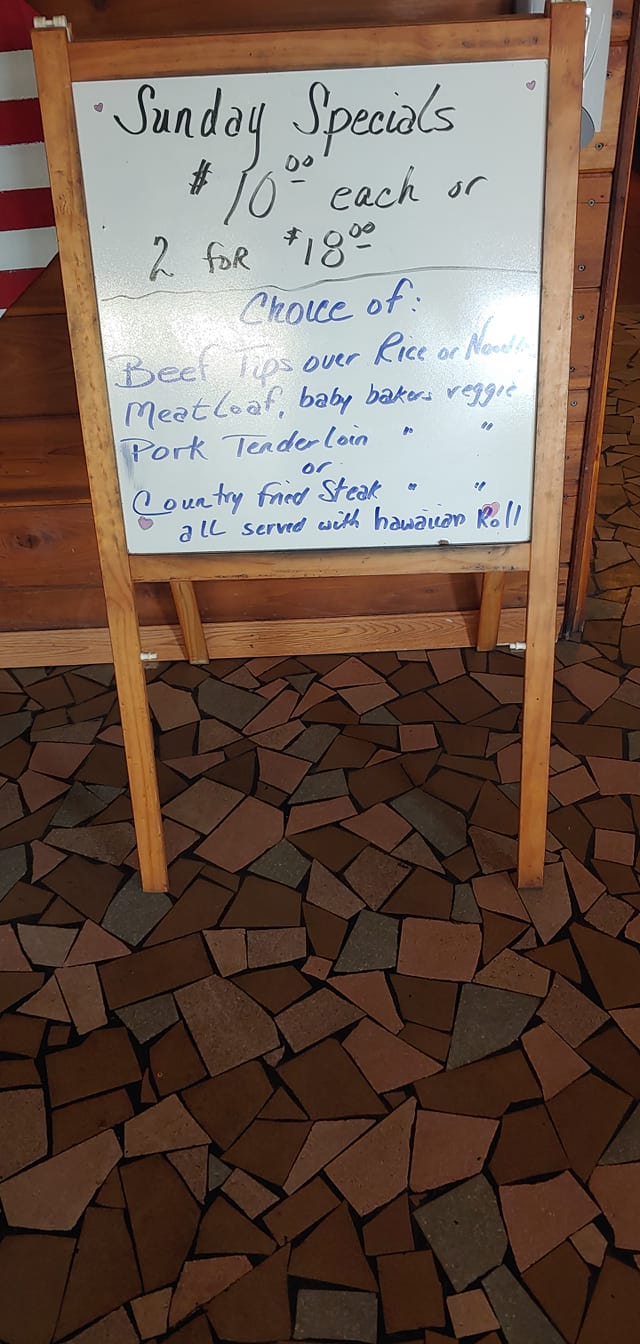 Sunday Specials
$10.00 each or
2 for $18.00
Choice of:
Beef Tips over Rice or
Meatloaf, baby bakers veggie
Pork Tenderloin " "
or
Country fried Steak " "
all served with hawaiian Roll